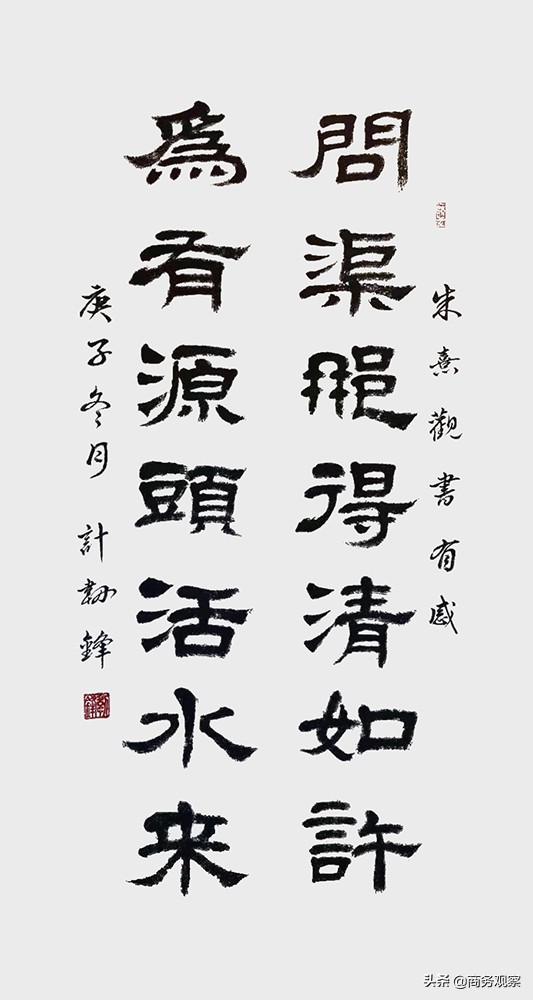 朱熹觀書有感
問渠那得清如許
爲有源頭活水来
庚子冬月 計勀鋒
头条 @商务观察